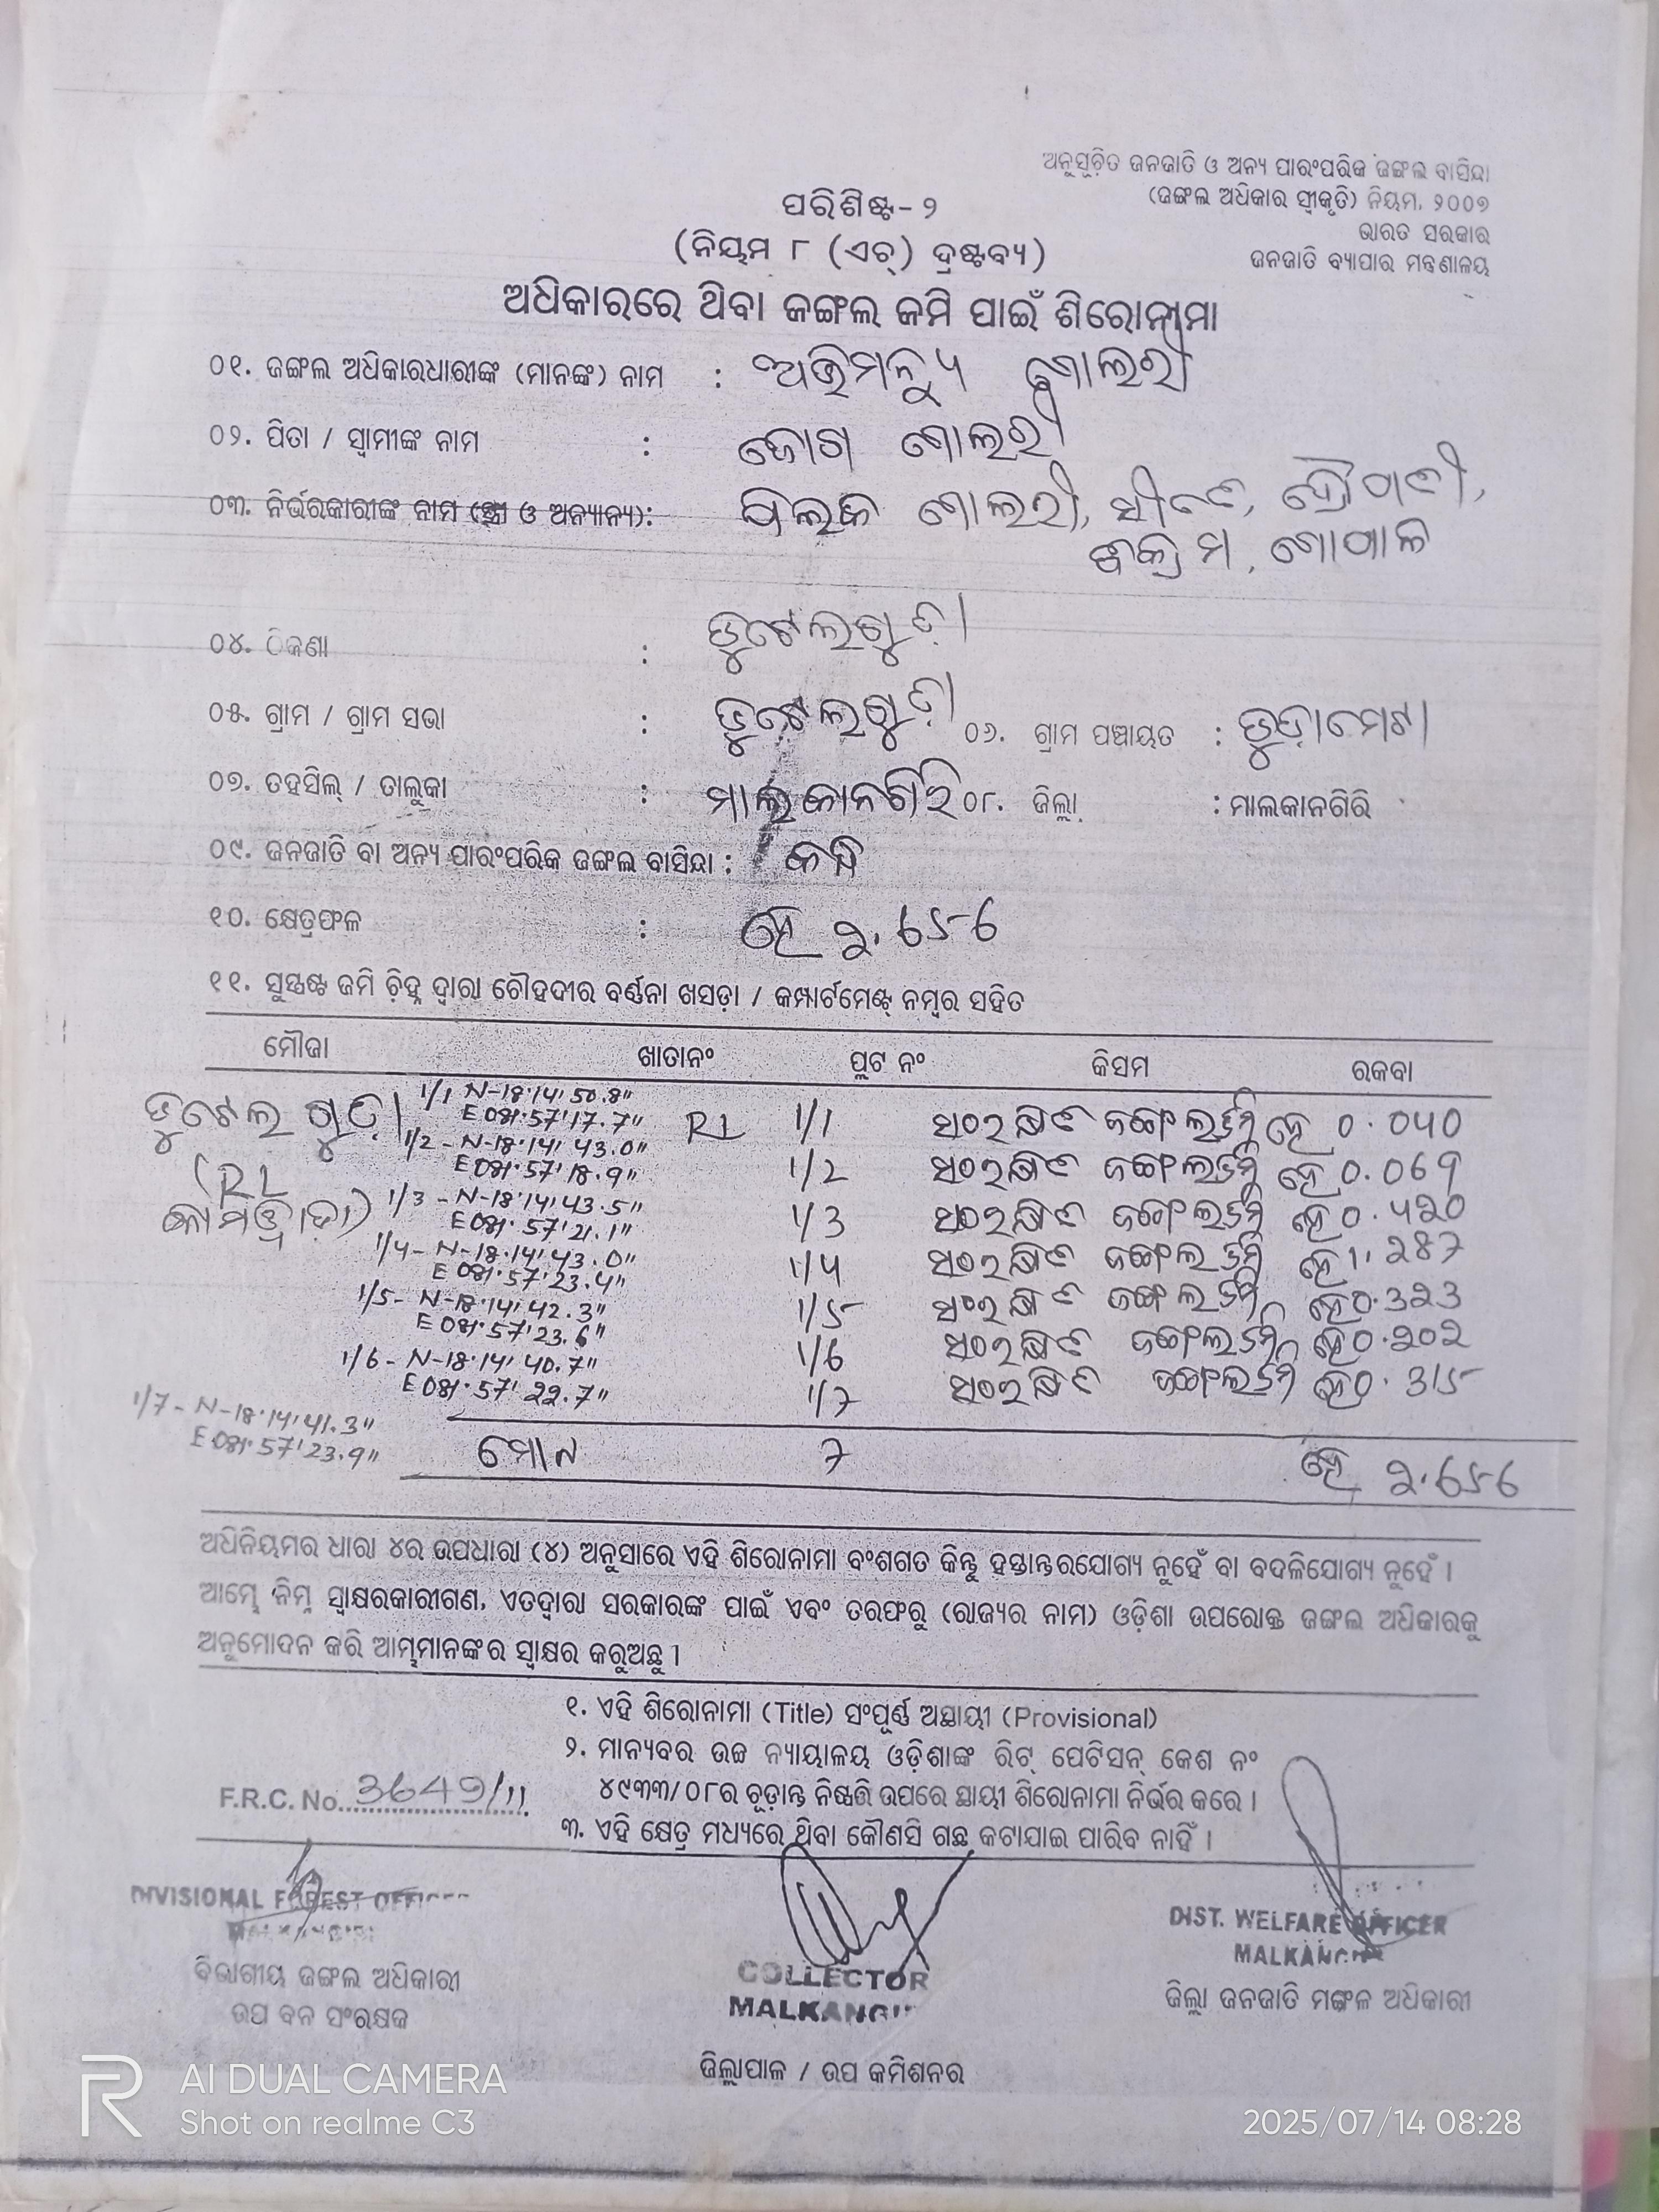 ଅନୁସୂଚିତ ଜନଜାତି ଓ ଅନ୍ୟ ପାରଂପରିକ ଜଙ୍ଗଲ ବାସିନ୍ଦା
(ଜଙ୍ଗଲ ଅଧିକାର ସ୍ୱୀକୃତି) ନିୟମ, ୨୦୦୭
ଭାରତ ସରକାର
ଜନଜାତି ବ୍ୟାପାର ମନ୍ତ୍ରଣାଳୟ
ପରିଶିଷ୍ଟ-୨
(ନିୟମ ୮ (ଏଚ୍) ଦ୍ରଷ୍ଟବ୍ୟ)
ଅଧିକାରରେ ଥିବା ଜଙ୍ଗଲ ଜମି ପାଇଁ ଶିରୋନାମା
୦୧. ଜଙ୍ଗଲ ଅଧିକାରଧାରୀଙ୍କ (ମାନଙ୍କ) ନାମ : ଅଭିମନ୍ୟୁ ଗୋଲରୀ
୦୨. ପିତା / ସ୍ୱାମୀଙ୍କ ନାମ : ଜୋଗ ଗୋଲରୀ
୦୩. ନିର୍ଭରକାରୀଙ୍କ ନାମ (ସ୍ତ୍ରୀ ଓ ଅନ୍ୟାନ୍ୟ): ଗୋଲରୀ,
ଗୋପାଳ
୦୪. ଠିକଣା : ଭୁଟେଲଗୁଡ଼ା
୦୫. ଗ୍ରାମ / ଗ୍ରାମ ସଭା : ଭୁଟେଲଗୁଡ଼ା ୦୬. ଗ୍ରାମ ପଞ୍ଚାୟତ :
୦୭. ତହସିଲ୍ / ତାଲୁକା : ମାଲକାନଗିରି ୦୮. ଜିଲ୍ଲା : ମାଲକାନଗିରି
୦୯. ଜନଜାତି ବା ଅନ୍ୟ ପାରଂପରିକ ଜଙ୍ଗଲ ବାସିନ୍ଦା :
୧୦. କ୍ଷେତ୍ରଫଳ : ହେ ୨.656
୧୧. ସୁସ୍ପଷ୍ଟ ଜମି ଚିହ୍ନ ଦ୍ୱାରା ଚୌହଦୀର ବର୍ଣ୍ଣନା ଖସଡ଼ା / କମ୍ପାର୍ଟମେଣ୍ଟ୍ ନମ୍ବର ସହିତ
ମୌଜା ଖାତାନଂ ପ୍ଲଟ ନଂ କିସମ ରକବା
ଭୁଟେଲ ଗୁଡ଼ା 1/1 N-18°14' 50.8"
E 081°57'17.7" RL 1/1 ସଂରକ୍ଷିତ ଜଙ୍ଗଲଜମି ହେ 0.040
1/2 - N-18°14' 43.0"
E 081°57'18.9" 1/2 ସଂରକ୍ଷିତ ଜଙ୍ଗଲଜମି ହେ 0.069
(RL
1/3 - N-18°14' 43.5"
E 081°57'21.1" 1/3 ସଂରକ୍ଷିତ ଜଙ୍ଗଲଜମି ହେ 0.420
1/4 - N-18°14' 43.0"
E 081°57'23.4" 1/4 ସଂରକ୍ଷିତ ଜଙ୍ଗଲଜମି ହେ 1.287
1/5 - N-18°14' 42.3"
E 081°57'23.6" 1/5 ସଂରକ୍ଷିତ ଜଙ୍ଗଲଜମି ହେ 0.323
1/6 - N-18°14' 40.7"
E 081°57' 22.7" 1/6 ସଂରକ୍ଷିତ ଜଙ୍ଗଲଜମି ହେ 0.202
1/7 - N-18°14' 41.3"
E 081°57'23.9" 1/7 ସଂରକ୍ଷିତ ଜଙ୍ଗଲଜମି ହେ 0.315
ମୋଟ 7 ହେ ୨.656
ଅଧିନିୟମର ଧାରା ୪ର ଉପଧାରା (୪) ଅନୁସାରେ ଏହି ଶିରୋନାମା ବଂଶଗତ କିନ୍ତୁ ହସ୍ତାନ୍ତରଯୋଗ୍ୟ ନୁହେଁ ବା ବଦଳିଯୋଗ୍ୟ ନୁହେଁ ।
ଆମ୍ଭେ ନିମ୍ନ ସ୍ୱାକ୍ଷରକାରୀଗଣ, ଏତଦ୍ୱାରା ସରକାରଙ୍କ ପାଇଁ ଏବଂ ତରଫରୁ (ରାଜ୍ୟର ନାମ) ଓଡ଼ିଶା ଉପରୋକ୍ତ ଜଙ୍ଗଲ ଅଧିକାରକୁ
ଅନୁମୋଦନ କରି ଆମ୍ଭମାନଙ୍କର ସ୍ୱାକ୍ଷର କରୁଅଛୁ ।
୧. ଏହି ଶିରୋନାମା (Title) ସଂପୂର୍ଣ୍ଣ ଅସ୍ଥାୟୀ (Provisional)
୨. ମାନ୍ୟବର ଉଚ୍ଚ ନ୍ୟାୟାଳୟ ଓଡ଼ିଶାଙ୍କ ରିଟ୍ ପେଟିସନ୍ କେଶ ନଂ
୪୯୩୩/୦୮ର ଚୂଡ଼ାନ୍ତ ନିଷ୍ପତ୍ତି ଉପରେ ସ୍ଥାୟୀ ଶିରୋନାମା ନିର୍ଭର କରେ ।
F.R.C. No. 3649/11
୩. ଏହି କ୍ଷେତ୍ର ମଧ୍ୟରେ ଥିବା କୌଣସି ଗଛ କଟାଯାଇ ପାରିବ ନାହିଁ ।
DIVISIONAL FOREST OFFICER
ବିଭାଗୀୟ ଜଙ୍ଗଲ ଅଧିକାରୀ
ଉପ ବନ ସଂରକ୍ଷକ
COLLECTOR
MALKANGIRI
ଜିଲ୍ଲାପାଳ / ଉପ କମିଶନର
DIST. WELFARE OFFICER
MALKANGIRI
ଜିଲ୍ଲା ଜନଜାତି ମଙ୍ଗଳ ଅଧିକାରୀ
AI DUAL CAMERA
Shot on realme C3
2025/07/14 08:28